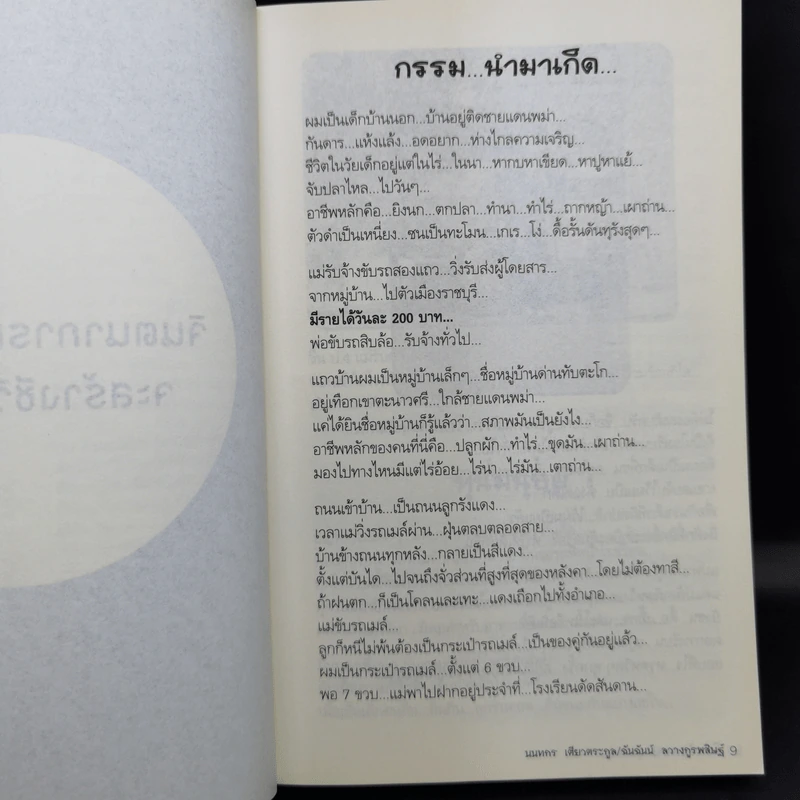 กรรม...นำมาเกิด...
ผมเป็นเด็กบ้านนอก...บ้านอยู่ติดชายแดนพม่า...
กันดาร...แห้งแล้ง...อดอยาก...ห่างไกลความเจริญ...
ชีวิตในวัยเด็กอยู่แต่ในไร่...ในนา...หากบหาเขียด...หาปูหาแย้...
จับปลาไหล...ไปวันๆ...
อาชีพหลักคือ...ยิงนก...ตกปลา...ทำนา...ทำไร่...ถากหญ้า...เผาถ่าน...
ตัวดำเป็นเหนี่ยง...ซนเป็นทะโมน...เกเร...โง่...ดื้อรั้นดันทุรังสุดๆ...
แม่รับจ้างขับรถสองแถว...วิ่งรับส่งผู้โดยสาร...
จากหมู่บ้าน...ไปตัวเมืองราชบุรี...
มีรายได้วันละ 200 บาท...
พ่อขับรถสิบล้อ...รับจ้างทั่วไป...
แถวบ้านผมเป็นหมู่บ้านเล็กๆ...ชื่อหมู่บ้านด่านทับตะโก...
อยู่เทือกเขาตะนาวศรี...ใกล้ชายแดนพม่า...
แค่ได้ยินชื่อหมู่บ้านก็รู้แล้วว่า...สภาพมันเป็นยังไง...
อาชีพหลักของคนที่นี่คือ...ปลูกผัก...ทำไร่...ขุดมัน...เผาถ่าน...
มองไปทางไหนมีแต่ไร่อ้อย...ไร่นา...ไร่มัน...เตาถ่าน...
ถนนเข้าบ้าน...เป็นถนนลูกรังแดง...
เวลาแม่วิ่งรถเมล์ผ่าน...ฝุ่นตลบตลอดสาย...
บ้านข้างถนนทุกหลัง...กลายเป็นสีแดง...
ตั้งแต่บันได...ไปจนถึงจั่วส่วนที่สูงที่สุดของหลังคา...โดยไม่ต้องทาสี...
ถ้าฝนตก...ก็เป็นโคลนเละเทะ...แดงเถือกไปทั้งอำเภอ...
แม่ขับรถเมล์...
ลูกก็หนีไม่พ้นต้องเป็นกระเป๋ารถเมล์...เป็นของคู่กันอยู่แล้ว...
ผมเป็นกระเป๋ารถเมล์...ตั้งแต่ 6 ขวบ...
พอ 7 ขวบ...แม่พาไปฝากอยู่ประจำที่...โรงเรียนดัดสันดาน...
นนทกร เตียวตระกูล/ฉันฉันน์ ลวางกูรพสิษฐ์ 9